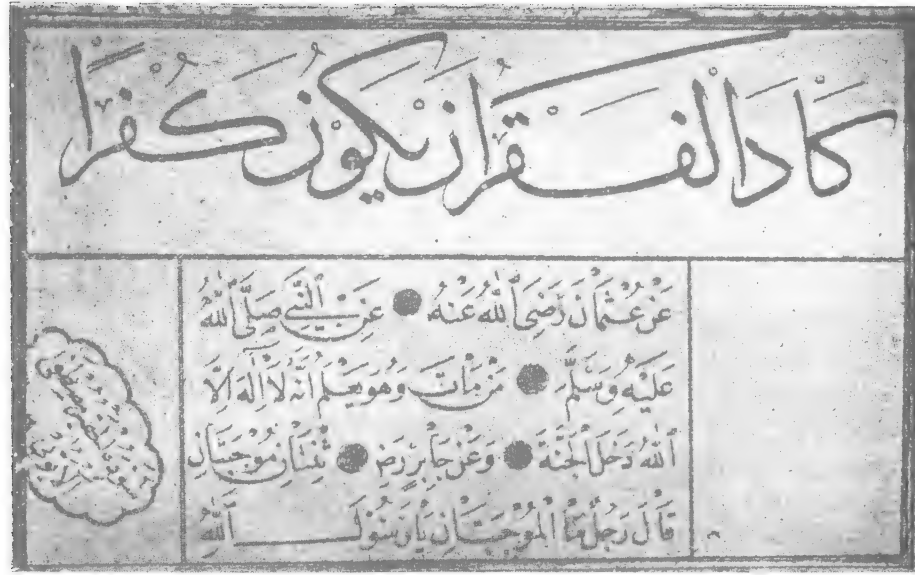 كَادَ الْفَقْرُ اَنْ يَكُونَ كُفْرًا
عَنْ عُثْمَانَ رَضِيَ اللّٰهُ عَنْهُ ● عَنِ النَّبِيِّ صَلَّى اللّٰهُ
عَلَيْهِ وَسَلَّمَ ● مَنْ مَاتَ وَهُوَ يَعْلَمُ اَنَّهُ لَا اِلٰهَ اِلَّا
اللّٰهُ دَخَلَ الْجَنَّةَ ● وَعَنْ جَابِرٍ رَضِ ● ثِنْتَانِ مُوجِبَتَانِ
قَالَ رَجُلٌ مَا الْمُوجِبَتَانِ يَا رَسُولَ اللّٰهِ